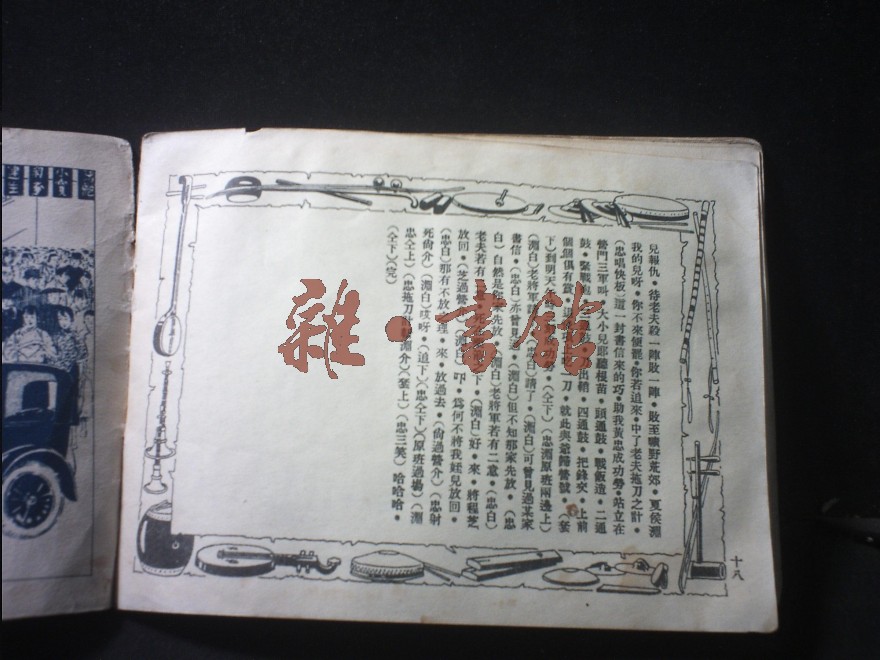 兒報仇·待老夫殺一陣敗一陣·敗至曠野荒郊·夏侯淵
我的兒呀·你不來便罷·你若追來·中了老夫拖刀之計·
（忠唱快板）這一封書信來的巧·助我黃忠成功勞·站立在
營門三軍叫·大小兒郎聽根苗·頭通鼓·戰飯造·二通
鼓·緊戰袍·三通　出鞘·四通鼓·把鋒交·上前
個個俱有賞·退　刀·就此與爺歸營號·（套
下）到明天　功勞·（仝下）（忠淵原班兩邊上）
（淵白）老將軍請　（忠白）請了·（淵白）可曾見過某家
書信·（忠白）亦曾見過·（淵白）但不知那家先放·（忠
白）自然是你家先放·（淵白）老將軍若有二意·（忠白）
老夫若有　死　下·（淵白）好·來·將程芝
放回·（芝過營介）（淵白）吓·為何不將我姪兒放回·
（忠白）那有不放之理·來·放過去·（尙過營介）（忠射
死尙介）（淵白）哎呀·（追下）（忠仝下）（原班過場）（淵
忠仝上）（忠拖刀　淵介）（套上）（忠三笑）哈哈哈·
（仝下）（完）
十八
雜·書館